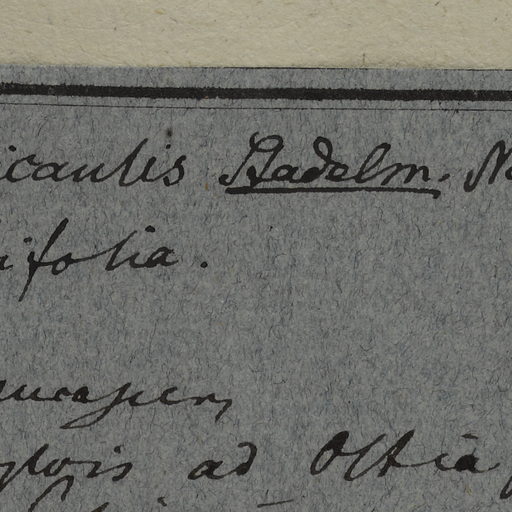 icaulis Stadelm. N
ifolia.
ucasien,
ylvis ad Ostia